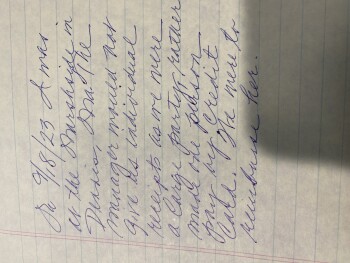 On 9/18/23 I was
at the in
The
manager would not
give us individual
receipts as we were
a large party, rather
made one person
pay by credit
card. We were to
reimburse her.